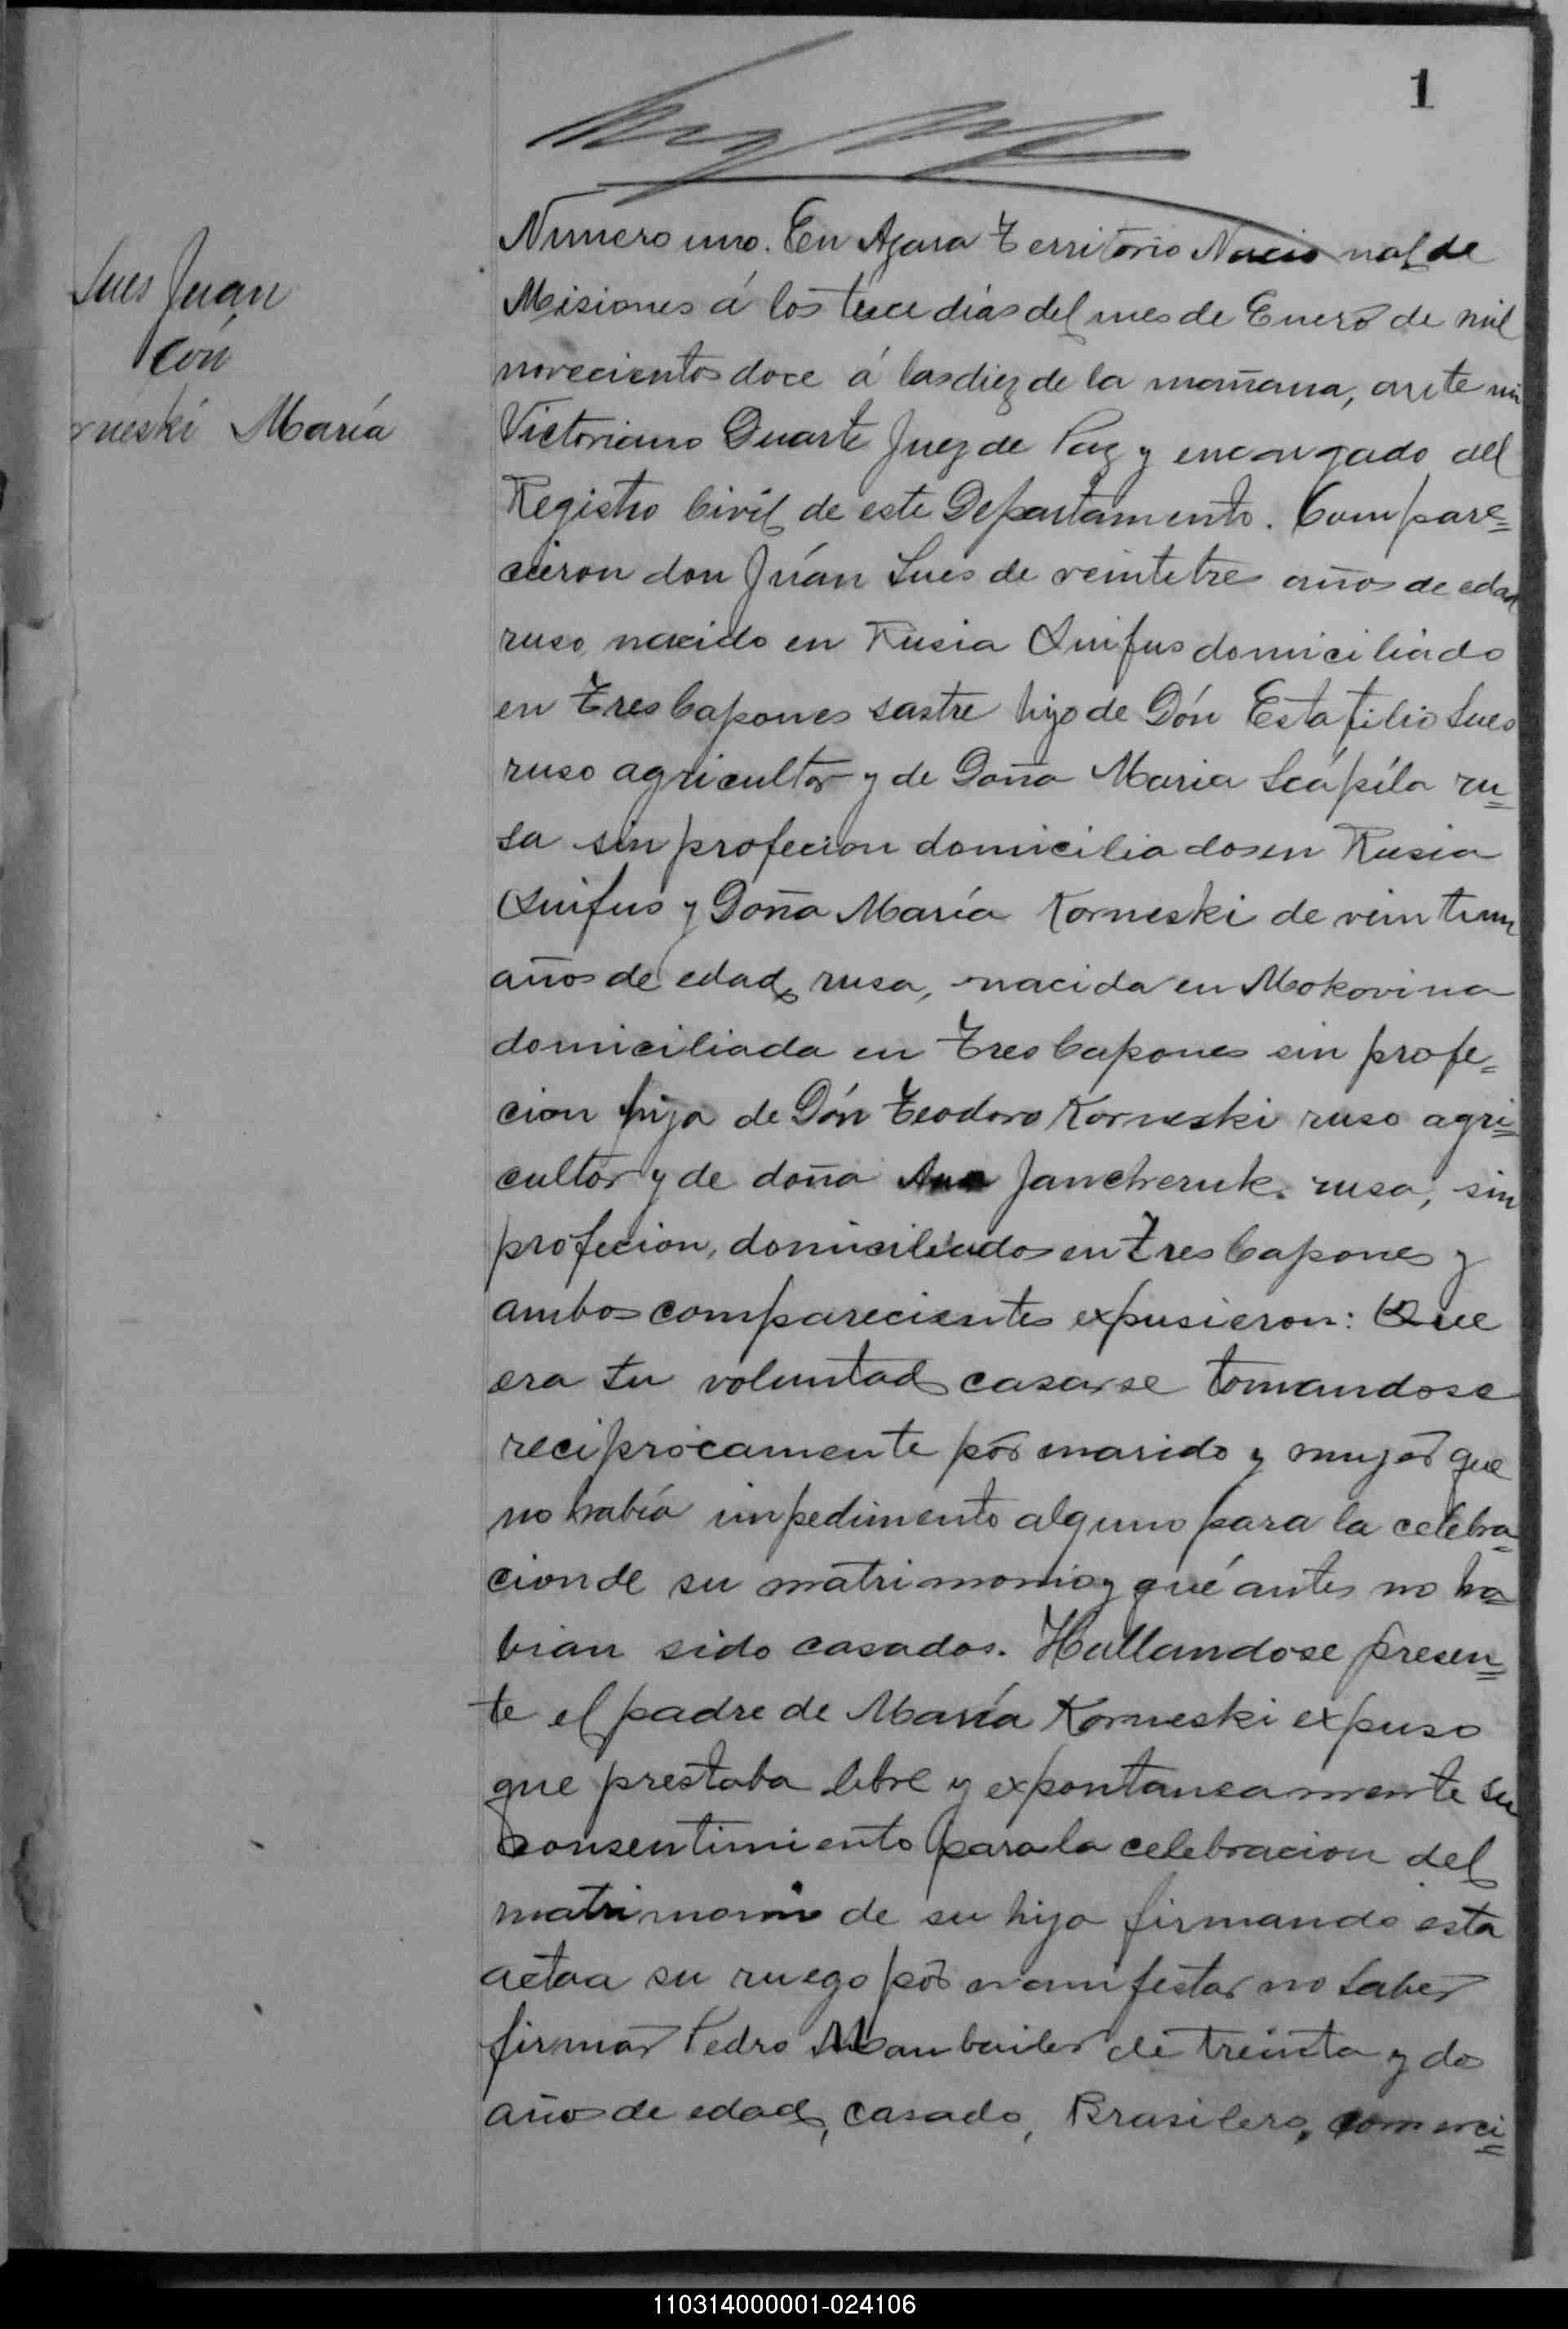 1
Sues Juan
Con
rneski María
Número uno. En Azara Territorio Nacional de
Misiones á los trece días del mes de Enero de mil
novecientos doce á las diez de la mañana, ante mi
Victoriano Duarte Juez de Paz y encargado del
Registro Civil de este Departamento. Compare=
cieron don Juán Sues de veintetres años de edad
ruso, nacido en Rusia domiciliado
en Tres Capones sastre hijo de Dón Estafilio Sues
ruso agricultor y de Doña Maria Scápila ru=
sa sin profecion domiciliados en Rusia
y Doña María Korneski de veintiun
años de edad, rusa, nacida en Mokovina
domiciliada en Tres Capones sin profe=
cion hija de Dón Teodoro Korneski ruso agri=
cultor y de doña Ana Jancheruk. rusa, sin
profecion, domiciliados en Tres Capones y
ambos comparecientes expusieron: Que
era su voluntad casarse tomandose
reciprocamente por marido y mujer que
no había impedimento alguno para la celebra=
cion de su matrimonio y qué antes no ha=
bian sido casados. Hallandose presen=
te el padre de María Korneski expuso
que prestaba libre y expontaneamente su
consentimiento para la celebracion del
matrimonio de su hija firmando esta
acta a su ruego por manifestar no saber
firmar Pedro de treinta y dos
años de edad, casado, Brasilero, comerci=
110314000001-024106